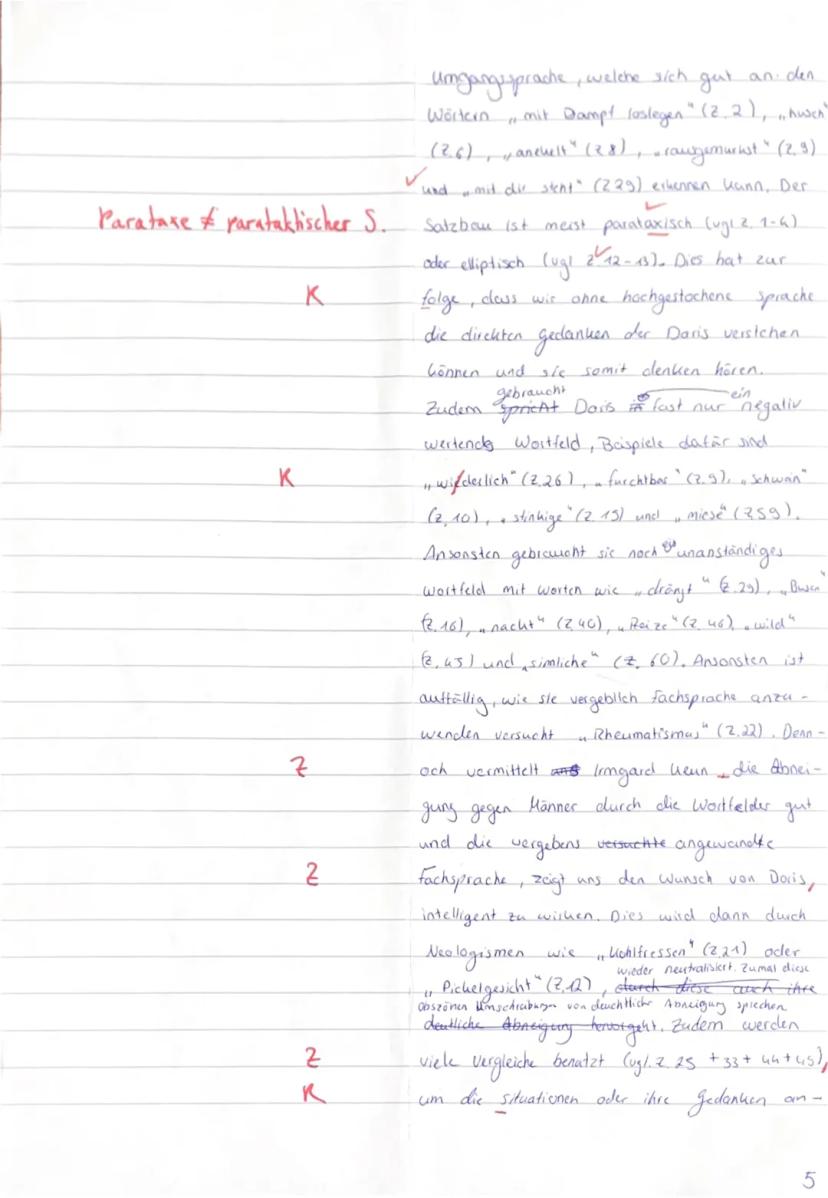 Umgangssprache, welche sich gut an den
Wörtern „mit Dampf loslegen" (Z.2), „husch"
(Z.6), „anekelt" (Z8), „rausgemurkst" (Z.9)
und „mit dir steht" (Z29) erkennen kann. Der
Parataxe ≠ parataktischer S. Satzbau ist meist parataxisch (vgl Z. 1-4)
oder elliptisch (vgl Z 12-13). Dies hat zur
K folge, dass wir ohne hochgestochene sprache
die direkten Gedanken der Doris verstehen
können und sie somit denken hören.
gebraucht ein
Zudem spricht Doris fast nur negativ
wertends Wortfeld, Beispiele dafür sind
K „wiederlich" (Z.26), „furchtbar" (Z.9), „schwan"
(Z.10), „stinkige" (Z.15) und „miese" (Z59).
Ansonsten gebraucht sie noch ein unanständiges
wortfeld mit worten wie „drängt" (Z.29), „Busen"
(Z.16), „nackt" (Z.40), „Reize" (Z.46), „wild"
(Z.45) und „simliche" (Z.60). Ansonsten ist
auffällig, wie sie vergeblich Fachsprache anzu-
wenden versucht „Rheumatismus" (Z.22). Denn-
Z och vermittelt Irmgard Keun die Abnei-
gung gegen Männer durch die Wortfelder gut
und die vergebens versuchte angewandte
Z Fachsprache, zeigt uns den Wunsch von Doris,
intelligent zu wirken. Dies wird dann durch
Neologismen wie „Kohlfressen" (Z.21) oder
wieder neutralisiert. Zumal diese
„Pickelgesicht" (Z.12), durch diese auch ihre
obszönen Umschreibungen von deuchtliche Abneigung sprechen
deutliche Abneigung hervorgeht. Zudem werden
Z viele Vergleiche benutzt (vgl. Z. 25 + 33 + 44 + 45),
R um die situationen oder ihre Gedanken an-
5